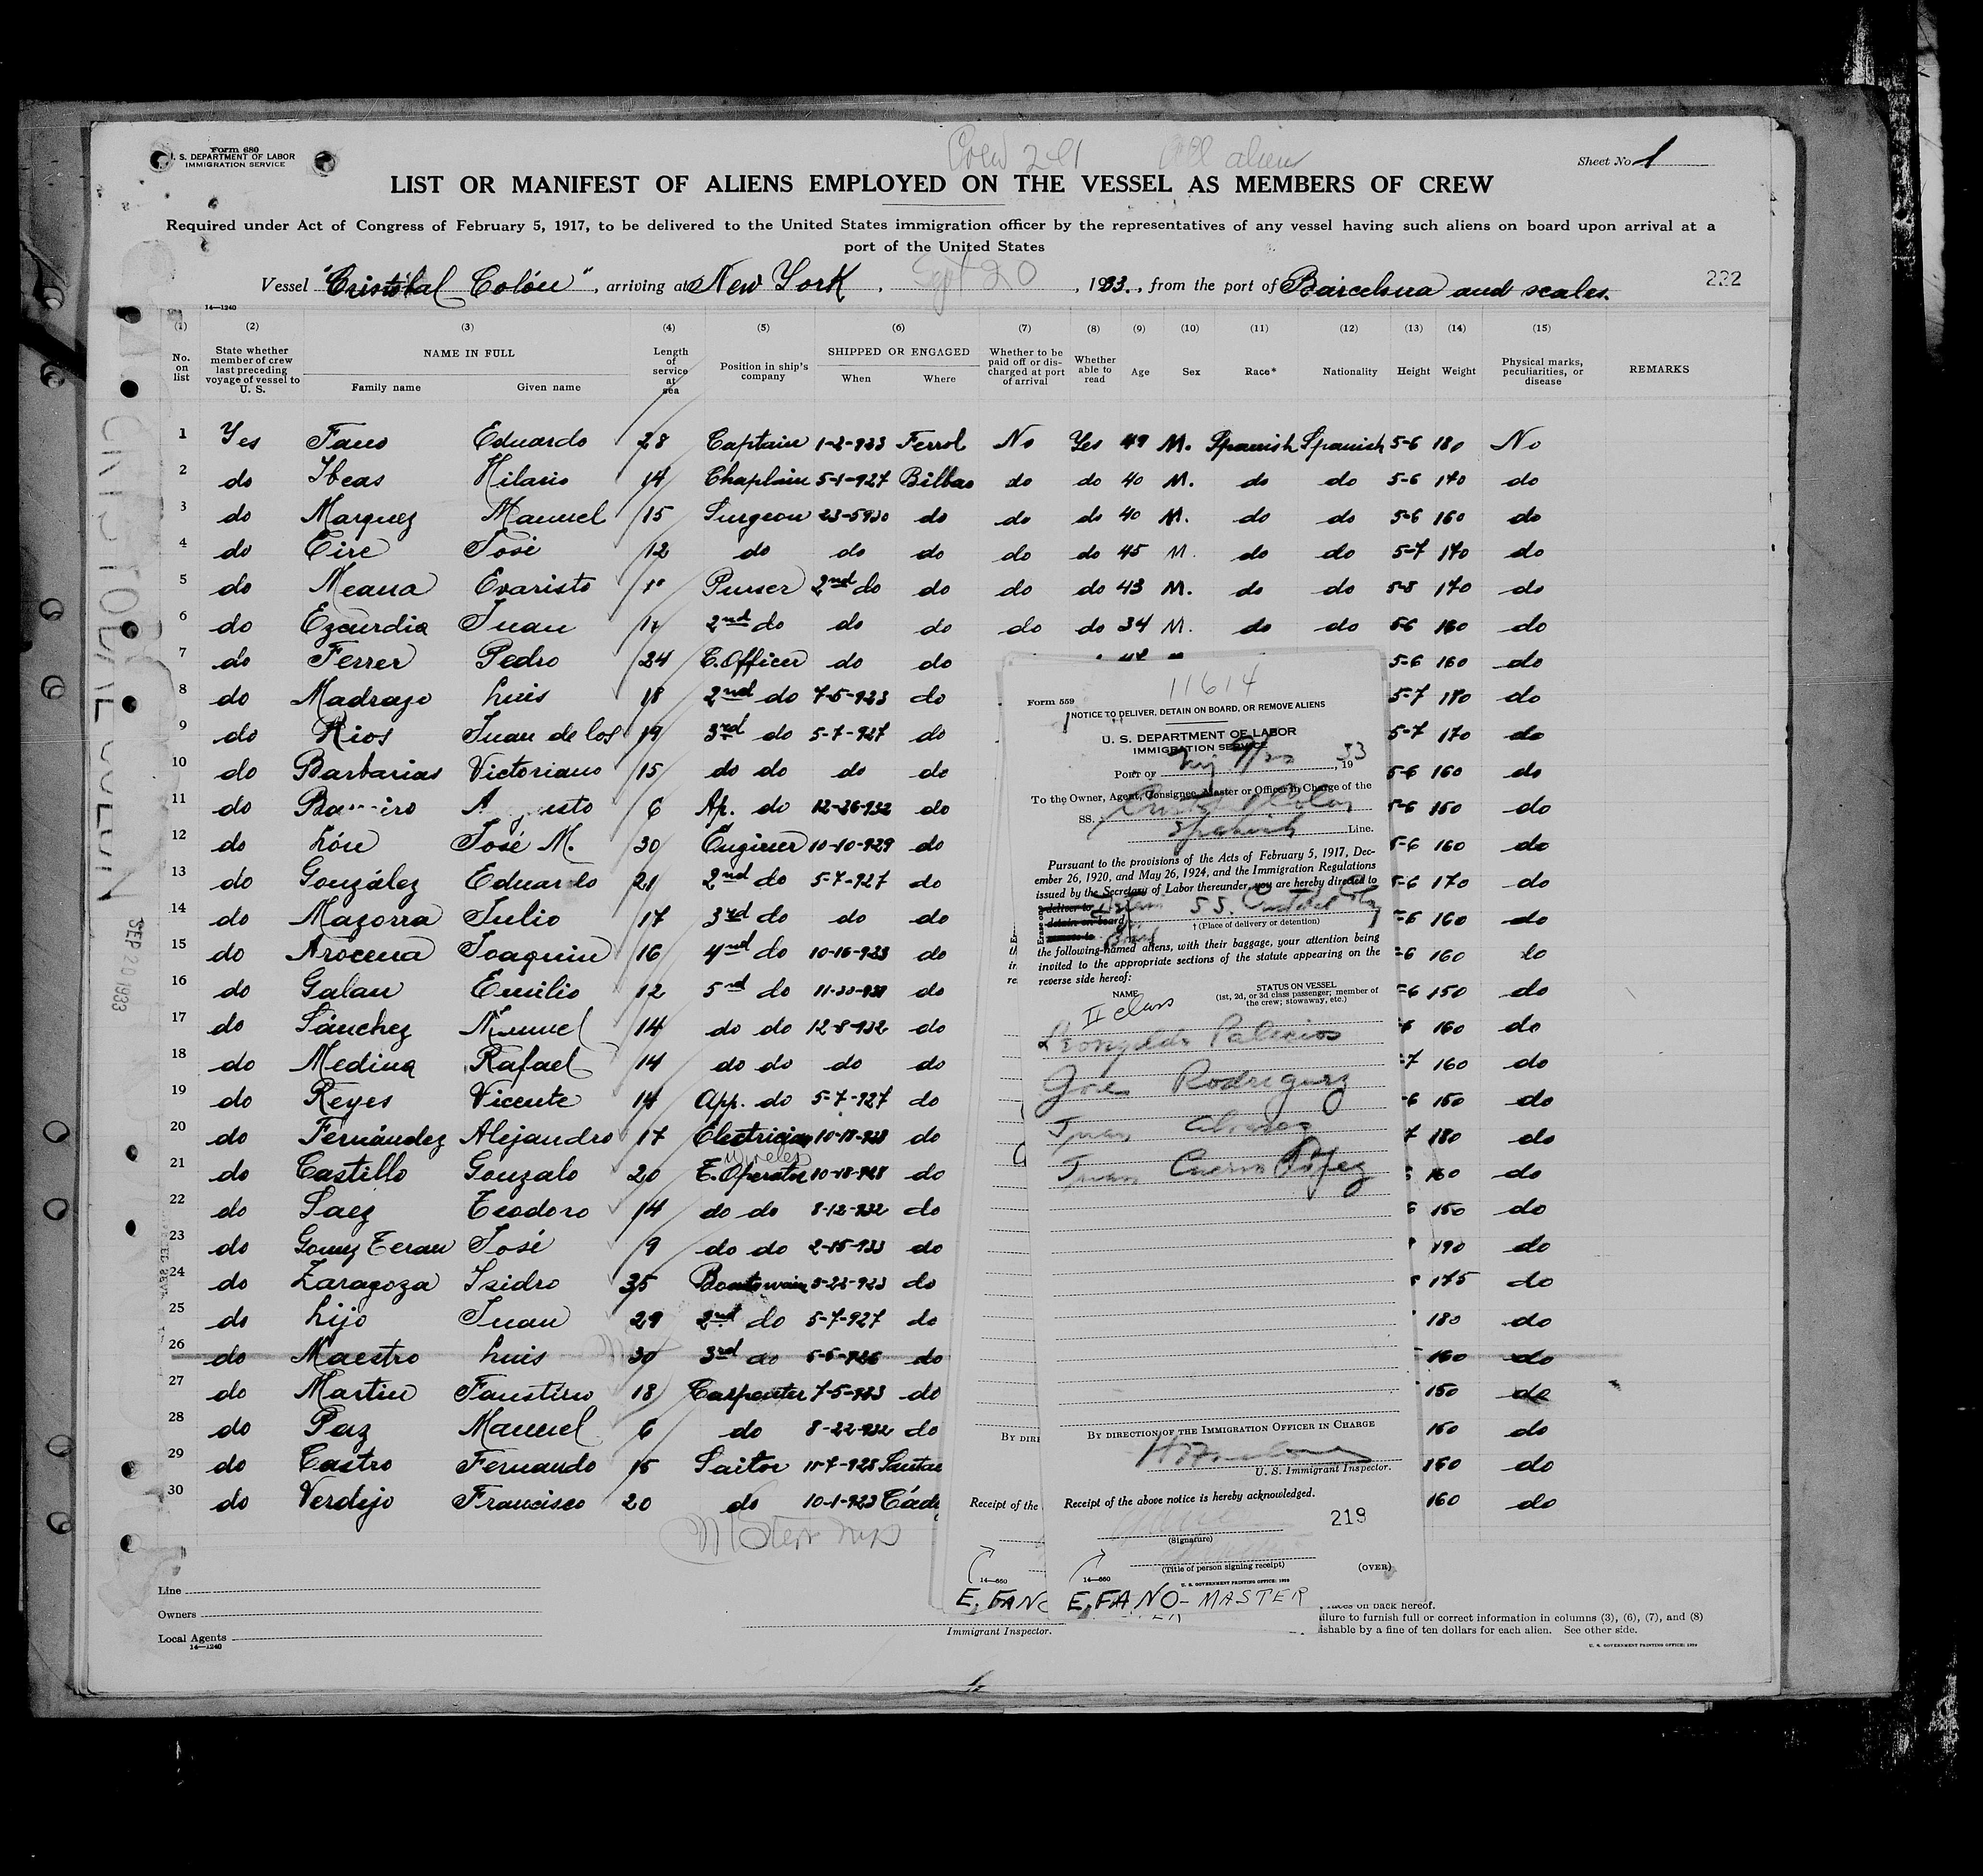 Form 680
U. S. DEPARTMENT OF LABOR
IMMIGRATION SERVICE
Crew 201 All alien
Sheet No. 1
LIST OR MANIFEST OF ALIENS EMPLOYED ON THE VESSEL AS MEMBERS OF CREW
Required under Act of Congress of February 5, 1917, to be delivered to the United States immigration officer by the representatives of any vessel having such aliens on board upon arrival at a
port of the United States
Vessel "Cristóbal Colón", arriving at New York, Sept 20, 1933., from the port of Barcelona and scales.
222
14—1240
(1) (2) (3) (4) (5) (6) (7) (8) (9) (10) (11) (12) (13) (14) (15)
No. on list State whether member of crew last preceding voyage of vessel to U. S. NAME IN FULL Family name Given name Length of service at sea Position in ship's company SHIPPED OR ENGAGED When Where Whether to be paid off or discharged at port of arrival Whether able to read Age Sex Race* Nationality Height Weight Physical marks, peculiarities, or disease REMARKS
1 Yes Fano Eduardo 28 Captain 1-2-933 Ferrol No Yes 49 M. Spanish Spanish 5-6 180 No
2 do Ibeas Hilario 14 Chaplain 5-1-927 Bilbao do do 40 M. do do 5-6 170 do
3 do Marquez Manuel 15 Surgeon 23-5930 do do do 40 M. do do 5-6 160 do
4 do Eire José 12 do do do do do 45 M. do do 5-7 170 do
5 do Neana Evaristo Purser 2nd do do do do 43 M. do do 5-8 170 do
6 do Ezcurdia Juan 2nd do do do do do 34 M. do do 5-6 160 do
7 do Ferrer Pedro 24 C. Officer do do 5-6 160 do
8 do Madrazo Luis 18 2nd do 7-5-923 do 5-7 180 do
9 do Rios Juan de los 19 3rd do 5-7-927 do 5-7 170 do
10 do Barbarias Victoriano 15 do do do do 5-6 160 do
11 do 6 Ap. do 12-26-932 do 5-6 150 do
12 do Lón José M. 30 Enginer 10-10-929 do 5-6 160 do
13 do González Eduardo 21 2nd do 5-7-927 do 5-6 170 do
14 do Mazorra Julio 17 3rd do do do -6 160 do
15 do Arocena Joaquin 16 4nd do 10-16-933 do -6 160 do
16 do Galan Emilio 12 5nd do do -6 150 do
17 do Sánchez Manuel 14 do do 12-8-932 do 160 do
18 do Medina Rafael 14 do do do do -7 160 do
19 do Reyes Vicente 14 App. do 5-7-927 do -6 150 do
20 do Fernández Alejandro 17 Electrician 10-18-928 do 7 180 do
wireless
21 do Castillo Gonzalo 20 T. Operator 10-18-928 do 160 do
22 do Saez Teodoro 14 do do 8-12-932 do 150 do
23 do Gomez Teran José 9 do do 2-15-933 do 190 do
24 do Zaragoza Isidro 35 Boatswain 8-22-923 do 175 do
25 do Lijo Juan 29 2nd do 5-7-927 do 180 do
26 do Maestro Luis 30 3rd do 6-6-926 do 160 do
27 do Martin Faustino 18 Carpenter 7-5-923 do 150 do
28 do Paz Manuel 6 do 8-22-932 do 150 do
29 do Castro Fernando 15 Sailor 11-7-928 Santan 150 do
30 do Verdejo Francisco 20 do 10-1-923 Cádi 160 do
Line
Owners
Local Agents
14—1240
Immigrant Inspector.
aces on back hereof.
ilure to furnish full or correct information in columns (3), (6), (7), and (8)
ishable by a fine of ten dollars for each alien. See other side.
U. S. GOVERNMENT PRINTING OFFICE: 1929
CRISTOBAL COLON
SEP 20 1933
11614
Form 559
NOTICE TO DELIVER, DETAIN ON BOARD, OR REMOVE ALIENS
U. S. DEPARTMENT OF LABOR
IMMIGRATION SERVICE
Port of NY 9/20, 1933
To the Owner, Agent, Consignee, Master or Officer in Charge of the
SS. Cristobal Colon
Spanish Line.
Pursuant to the provisions of the Acts of February 5, 1917, Dec-
ember 26, 1920, and May 26, 1924, and the Immigration Regulations
issued by the Secretary of Labor thereunder, you are hereby directed to
deliver to
detain on board
remove to
S.S.
† (Place of delivery or detention)
the following-named aliens, with their baggage, your attention being
invited to the appropriate sections of the statute appearing on the
reverse side hereof:
NAME STATUS ON VESSEL
(1st, 2d, or 3d class passenger; member of
the crew; stowaway, etc.)
II class
Palacios
Jose Rodriguez
Juan Alvarez
Juan Cuervo López
BY DIRECTION OF THE IMMIGRATION OFFICER IN CHARGE
U. S. Immigrant Inspector.
Receipt of the above notice is hereby acknowledged.
219
(Signature)
(Title of person signing receipt)
(OVER)
14—660
U. S. GOVERNMENT PRINTING OFFICE: 1929
E. FANO - MASTER
BY DIRE
Receipt of the
14—660
E. FANO